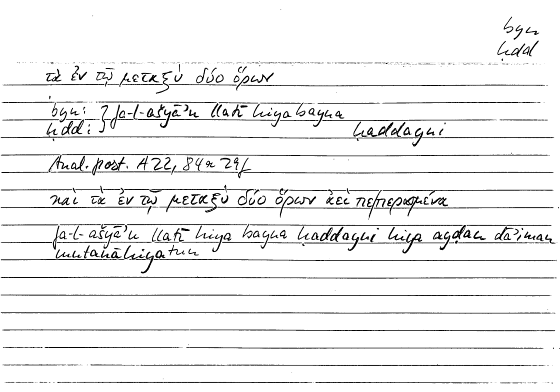 byn
ḥdd
τὰ ἐν τῷ μεταξὺ δύο ὅρων
byn: } fa-l-ašyāʾu llatī hiya bayna
ḥdd: } ḥaddayni
Anal. post. A 22, 84a 29f
καὶ τὰ ἐν τῷ μεταξὺ δύο ὅρων ἀεὶ πεπερασμένα
fa-l-ašyāʾu llatī hiya bayna ḥaddayni hiya ayḍan dāʾiman
mutanāhiyatun